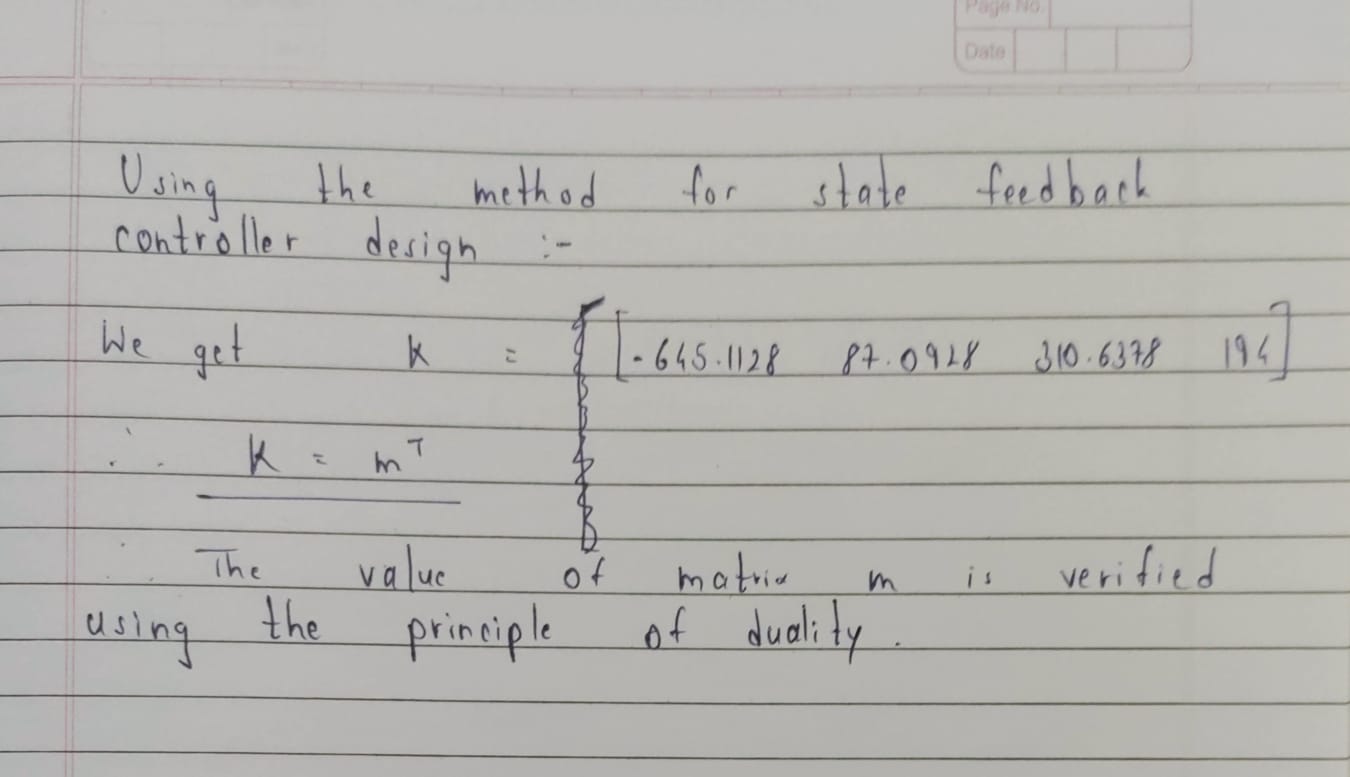 Page No.
Date
Using the method for state feedback
controller design :-
We get K = [-645.1128 87.0928 310.6378 194]
∴ K = m^T
∴ The value of matrix m is verified
using the principle of duality.